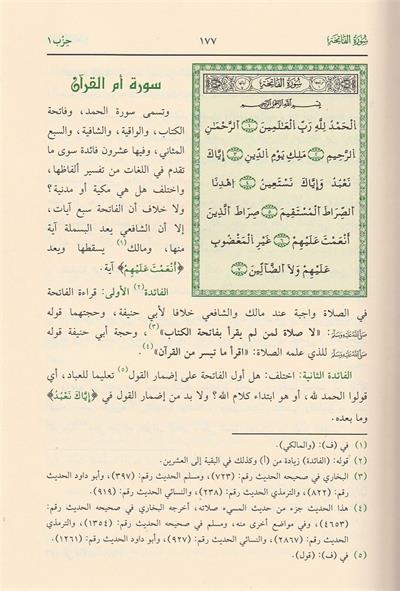 سورة الفاتحة
١٧٧
حزب ١
سورة الفاتحة
بسم الله الرحمن الرحيم
اَلْحَمْدُ لِلَّهِ رَبِّ الْعَٰلَمِينَ ١ اَلرَّحْمَٰنِ
اِلرَّحِيمِ ٢ مَلِكِ يَوْمِ الدِّينِ ٣ إِيَّاكَ
نَعْبُدُ وَإِيَّاكَ نَسْتَعِينُ ٤ اِهْدِنَا
اَلصِّرَاطَ الْمُسْتَقِيمَ ٥ صِرَاطَ الَّذِينَ
أَنْعَمْتَ عَلَيْهِمْ ٦ غَيْرِ الْمَغْضُوبِ
عَلَيْهِمْ وَلاَ الضَّآلِّينَ ٧
سورة أم القرآن
وتسمى سورة الحمد، وفاتحة
الكتاب، والواقية، والشافية، والسبع
المثاني، وفيها عشرون فائدة سوى ما
تقدم في اللغات من تفسير ألفاظها،
واختلف هل هي مكية أو مدنية؟
ولا خلاف أن الفاتحة سبع آيات،
إلا أن الشافعي يعد البسملة آية
منها، ومالك(١) يسقطها ويعد
﴿أَنْعَمْتَ عَلَيْهِمْ﴾ آية.
الفائدة(٢) الأولى: قراءة الفاتحة
في الصلاة واجبة عند مالك والشافعي خلافا لأبي حنيفة، وحجتهما قوله
ﷺ: «لا صلاة لمن لم يقرأ بفاتحة الكتاب»(٣)، وحجة أبي حنيفة قوله
ﷺ للذي علمه الصلاة: «اقرأ ما تيسر من القرآن»(٤).
الفائدة الثانية: اختلف: هل أول الفاتحة على إضمار القول(٥) تعليما للعباد، أي
قولوا الحمد لله، أو هو ابتداء كلام الله؟ ولا بد من إضمار القول في ﴿إِيَّاكَ نَعْبُدُ﴾
وما بعده.
(١) في (ف): (والمالكي).
(٢) قوله: (الفائدة) زيادة من (أ) وكذلك في البقية إلى العشرين.
(٣) البخاري في صحيحه الحديث رقم: (٧٢٣)، ومسلم في صحيحه الحديث رقم: (٣٩٧)، وأبو داود الحديث
رقم: (٨٢٢)، والترمذي الحديث رقم: (٢٣٨)، والنسائي الحديث رقم: (٩١٩).
(٤) هذا الحديث جزء من حديث المسيء صلاته، أخرجه البخاري في صحيحه الحديث رقم:
(٤٦٥٣)، وفي مواضع أخرى منه، ومسلم في صحيحه الحديث رقم: (١٣٥٤)، والترمذي
الحديث رقم: (٢٨٦٧)، والنسائي الحديث رقم: (٩٢٧)، وأبو داود الحديث رقم: (١٢٦١).
(٥) في (ف): (قول).